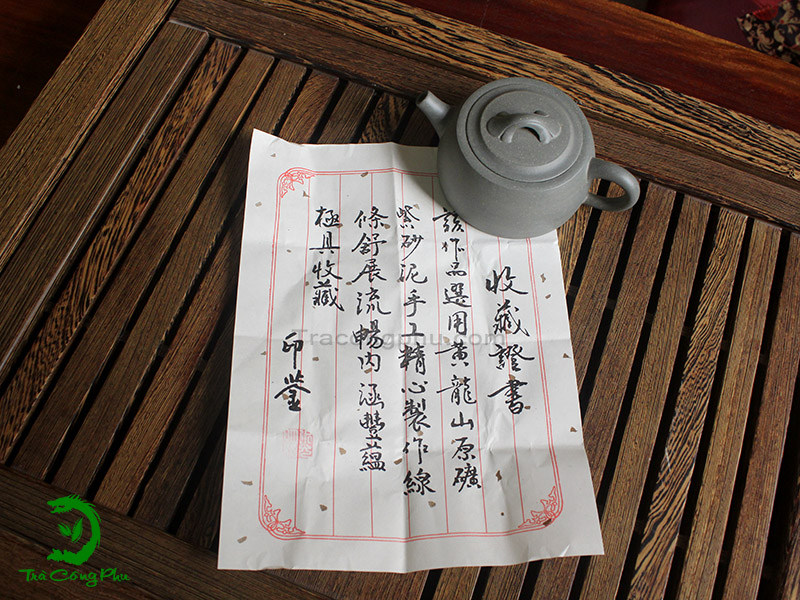 收藏證書
該作品選用黃龍山原礦
紫砂泥手工精心製作線
條舒展流暢內涵豐蘊
極具收藏
印鑒
Tracongphu.com
Trà Công Phu